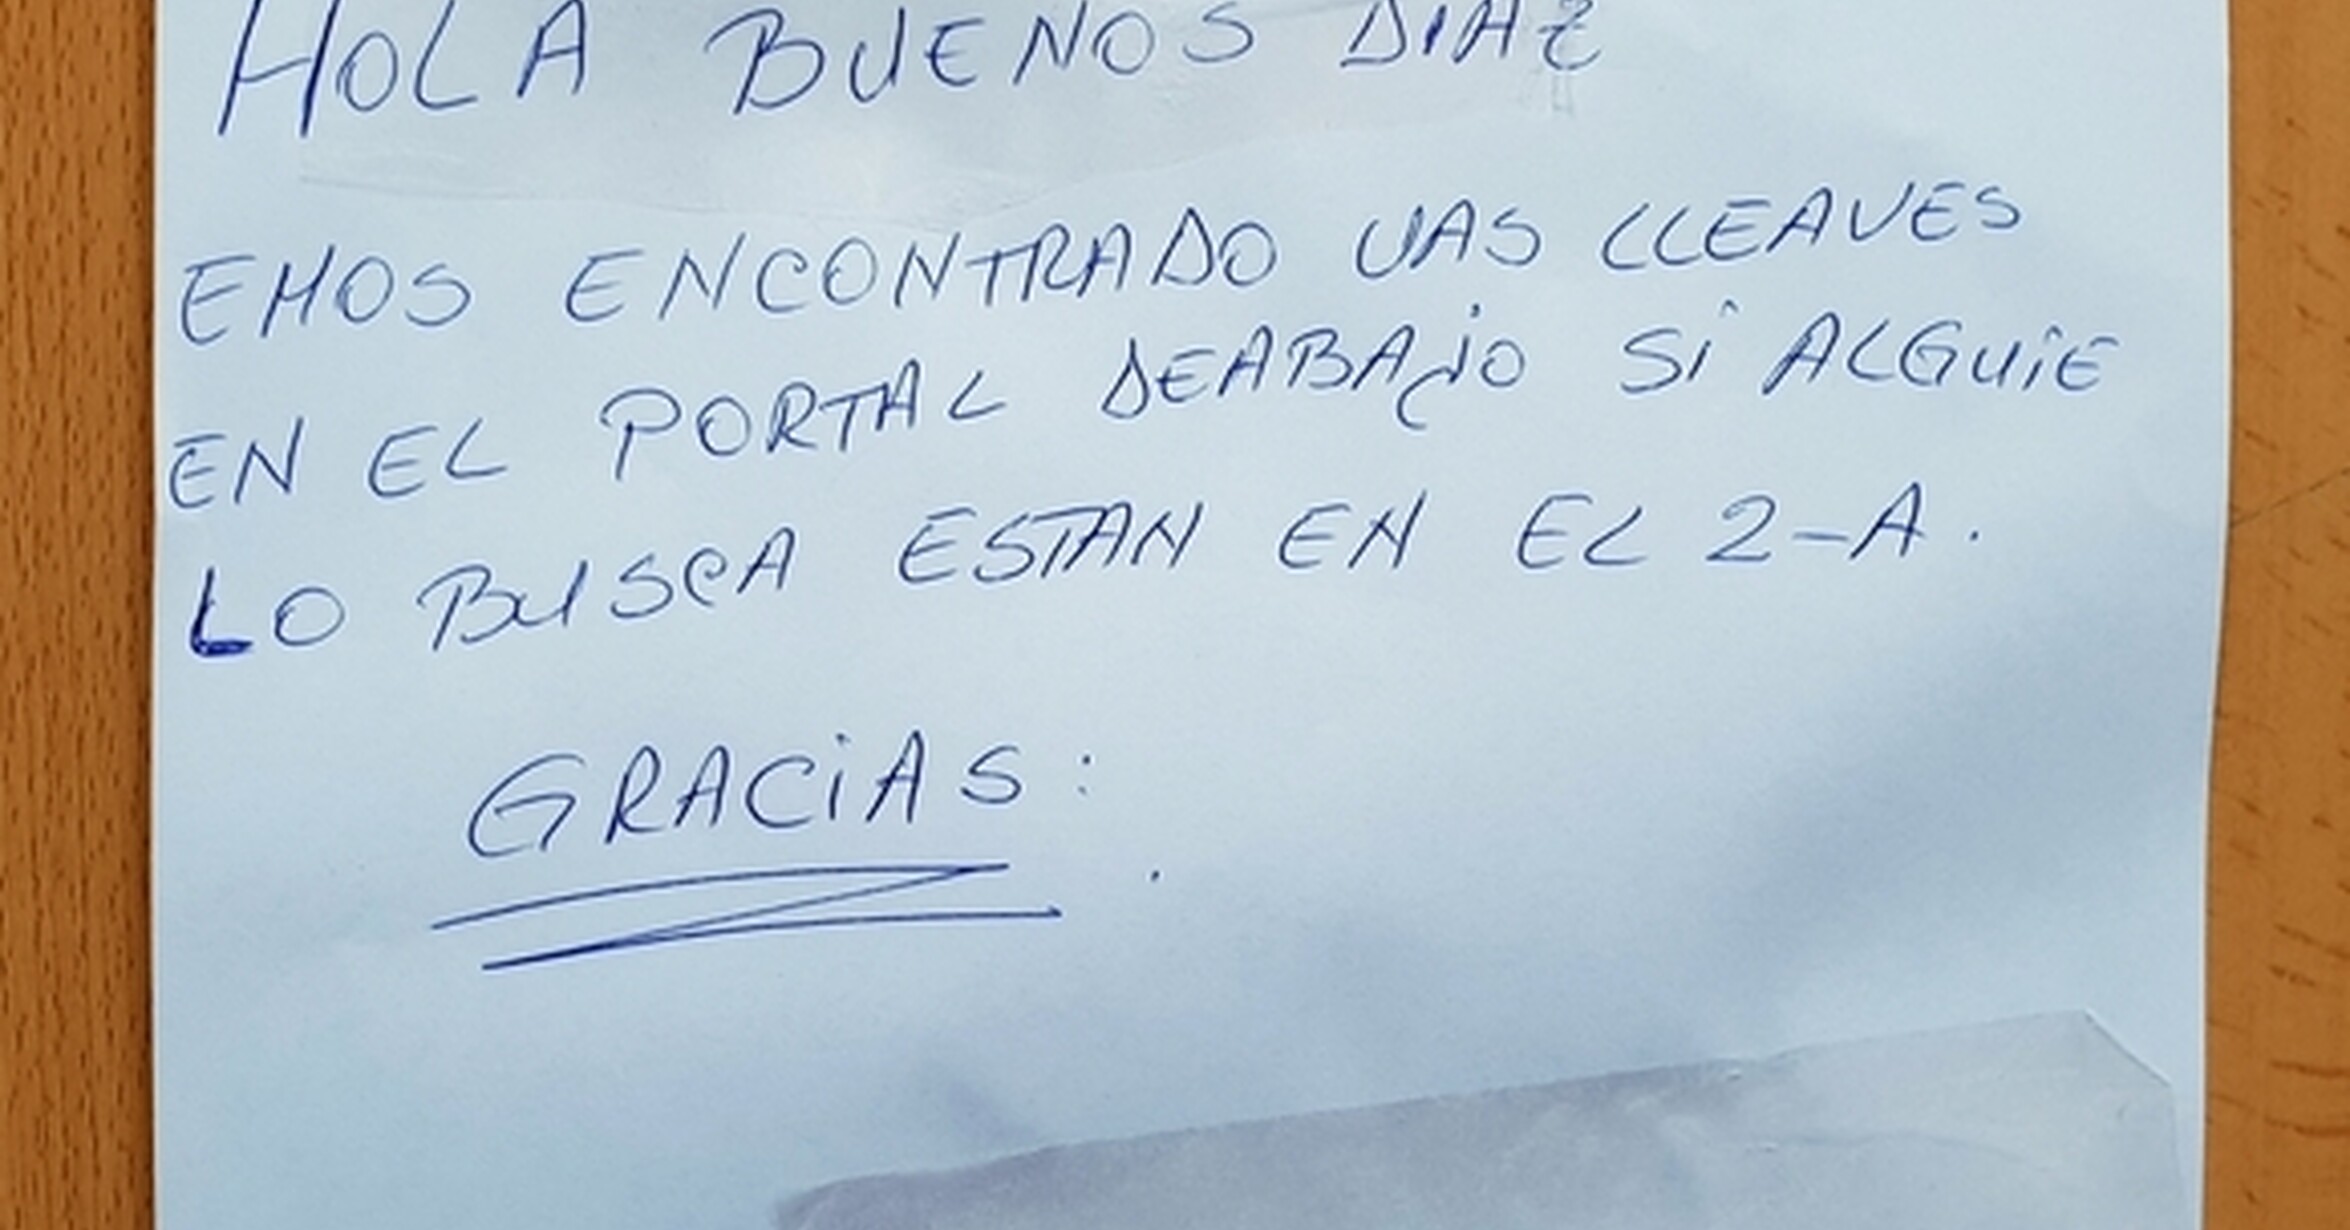 HOLA BUENOS DIAZ
EMOS ENCONTRADO UAS LLEAVES
EN EL PORTAL DEABAJO SI ALGUIE
LO BUSCA ESTAN EN EL 2-A.
GRACIAS: